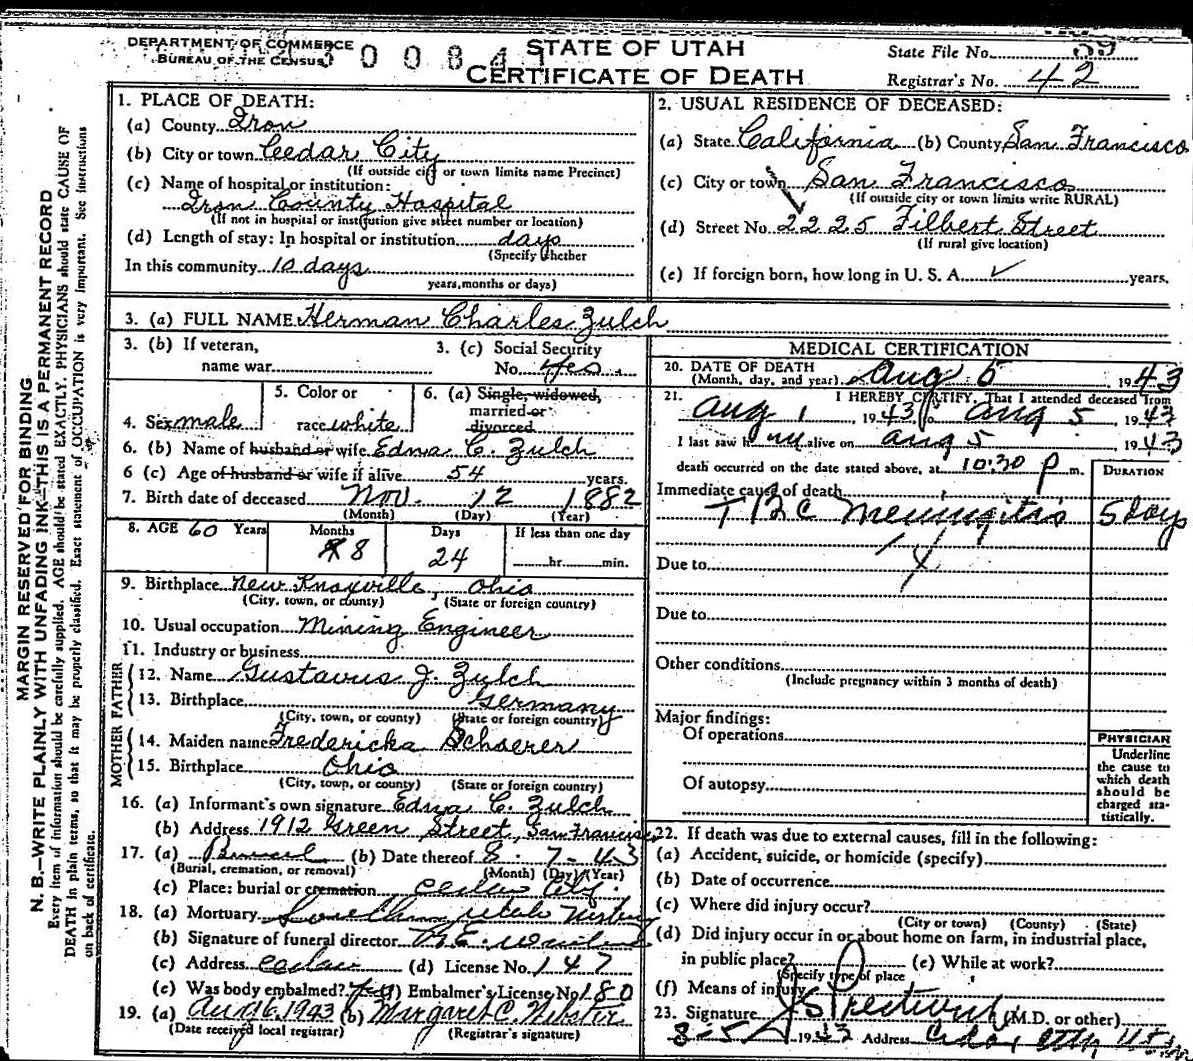 DEPARTMENT OF COMMERCE
BUREAU OF THE CENSUS
STATE OF UTAH
CERTIFICATE OF DEATH
State File No. 39
Registrar's No. 42
MARGIN RESERVED FOR BINDING
N. B.—WRITE PLAINLY WITH UNFADING INK—THIS IS A PERMANENT RECORD
Every item of information should be carefully supplied. AGE should be stated EXACTLY. PHYSICIANS should state CAUSE OF
DEATH in plain terms, so that it may be properly classified. Exact statement of OCCUPATION is very important. See instructions
on back of certificate.
1. PLACE OF DEATH:
(a) County Iron
(b) City or town Cedar City
(If outside city or town limits name Precinct)
(c) Name of hospital or institution:
Iron County Hospital
(If not in hospital or institution give street number or location)
(d) Length of stay: In hospital or institution days
(Specify whether
In this community 10 days
years, months or days)
2. USUAL RESIDENCE OF DECEASED:
(a) State California (b) County San Francisco
(c) City or town San Francisco
(If outside city or town limits write RURAL)
(d) Street No. 2225 Filbert Street
(If rural give location)
(e) If foreign born, how long in U. S. A. ✓ years.
3. (a) FULL NAME Herman Charles Zulch
3. (b) If veteran, name war
3. (c) Social Security No. yes
4. Sex male
5. Color or race white
6. (a) Single, widowed, married or divorced
6. (b) Name of husband or wife Edna C. Zulch
6 (c) Age of husband or wife if alive 54 years.
7. Birth date of deceased Nov. 12 1882
(Month) (Day) (Year)
8. AGE 60 Years
Months 8
Days 24
If less than one day
hr. min.
9. Birthplace New Knoxville, Ohio
(City, town, or county) (State or foreign country)
10. Usual occupation Mining Engineer
11. Industry or business
FATHER
12. Name Gustavus J. Zulch
13. Birthplace Germany
(City, town, or county) (State or foreign country)
MOTHER
14. Maiden name Fredericka Schaerer
15. Birthplace Ohio
(City, town, or county) (State or foreign country)
16. (a) Informant's own signature Edna C. Zulch
(b) Address 1912 Green Street, San Francisco
17. (a) Burial (b) Date thereof 8-7-43
(Burial, cremation, or removal) (Month) (Day) (Year)
(c) Place: burial or cremation Cedar City.
18. (a) Mortuary Southern Utah
(b) Signature of funeral director
(c) Address Cedar (d) License No. 147
(e) Was body embalmed? yes (f) Embalmer's License No. 180
19. (a) Aug 16 1943 (b) Margaret C. Webster
(Date received local registrar) (Registrar's signature)
MEDICAL CERTIFICATION
20. DATE OF DEATH
(Month, day, and year) Aug 5, 1943
21. I HEREBY CERTIFY, That I attended deceased from
Aug 1, 1943 to Aug 5, 1943
I last saw him alive on Aug 5 1943
death occurred on the date stated above, at 10:30 p m.
DURATION
Immediate cause of death
TBC Meningitis 5 days
Due to
Due to
Other conditions
(Include pregnancy within 3 months of death)
Major findings:
Of operations
Of autopsy
PHYSICIAN
Underline
the cause to
which death
should be
charged sta-
tistically.
22. If death was due to external causes, fill in the following:
(a) Accident, suicide, or homicide (specify)
(b) Date of occurrence
(c) Where did injury occur?
(City or town) (County) (State)
(d) Did injury occur in or about home on farm, in industrial place,
in public place? (e) While at work?
(Specify type of place
(f) Means of injury
23. Signature (M.D. or other)
8-5 1943 Address Cedar City Ut